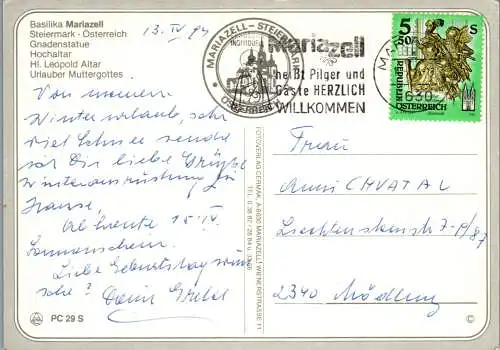 Basilika Mariazell
Steiermark · Österreich
Gnadenstatue
Hochaltar
Hl. Leopold Altar
Urlauber Muttergottes
13. IV 94
MARIAZELL - STEIERMARK
ÖSTERREICH
Mariazell
heißt Pilger und
Gäste HERZLICH
WILLKOMMEN
5 50 S
REPUBLIK
ÖSTERREICH
630
Von meinem
Winterurlaub, sehr
viel Schnee sende
Dir liebe Grüße
Winterausrüstung zu
Hause.
Ab heute 15. IV.
Sonnenschein.
Liebe Geburtstag wün
sche?
FOTOVERLAG GERMAK, A-8630 MARIAZELL, WIENERSTRASSE 11
TEL. 0 38 82
Frau
Anni CHVATAL
Liechtensteinstr. 7-
2340 Mödling
PC 29 S
©